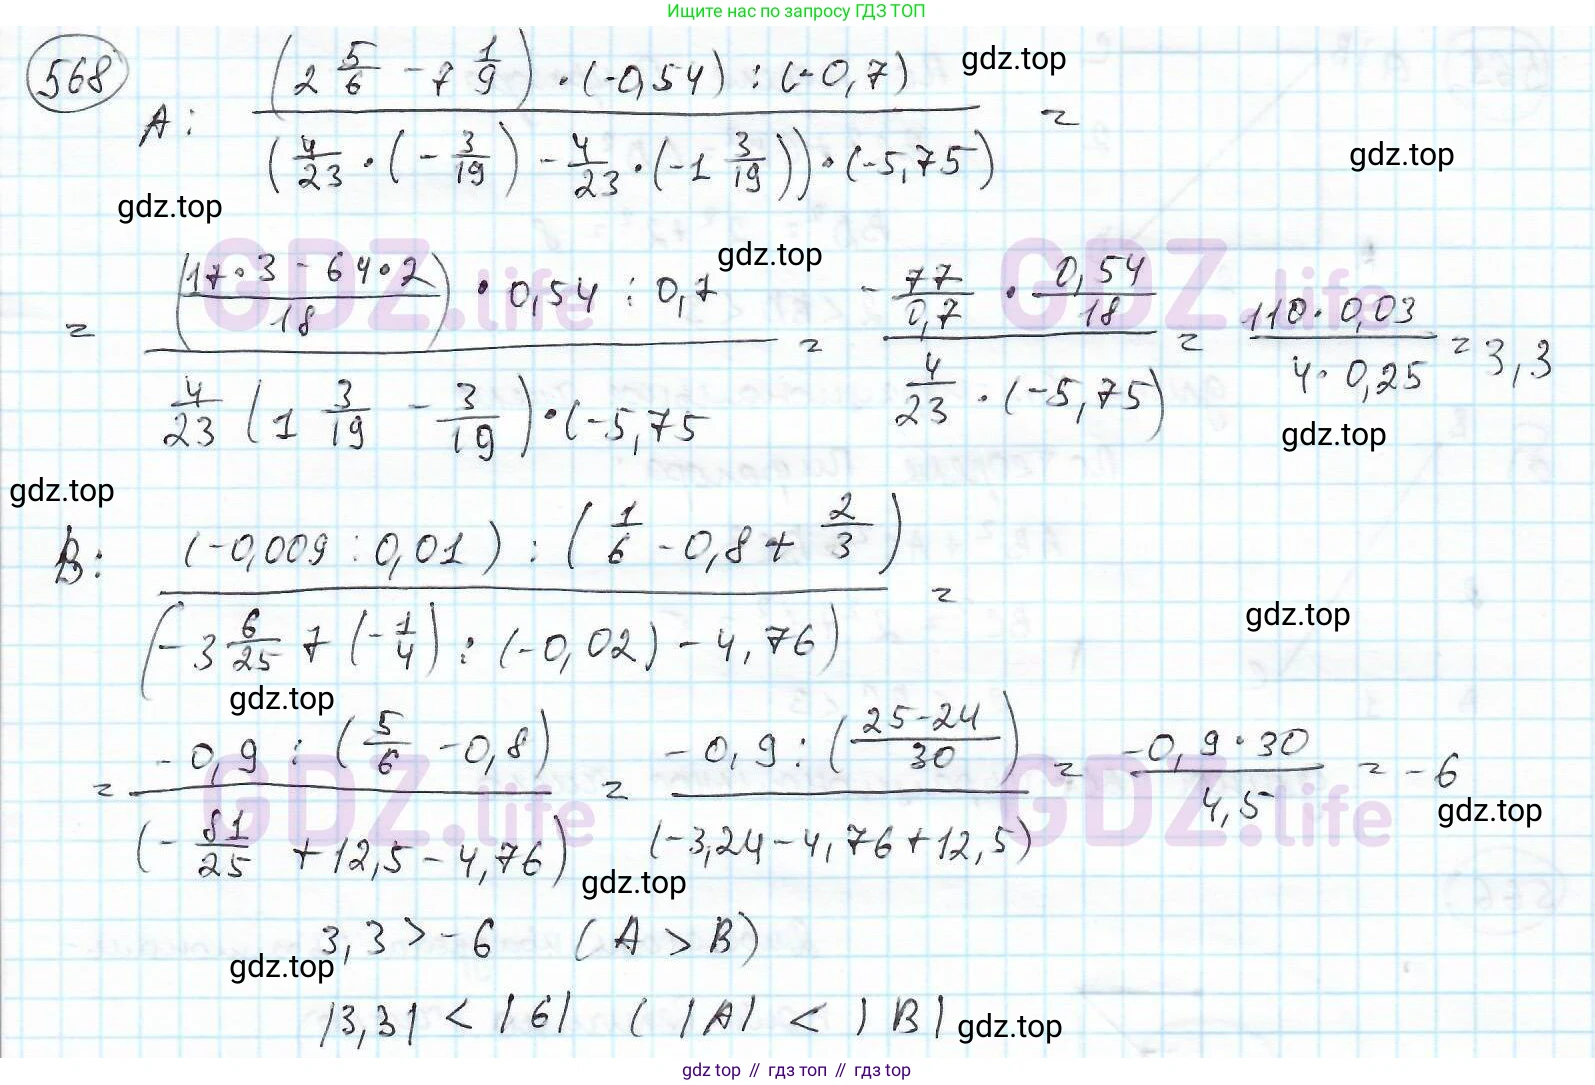 Ищите нас по запросу ГДЗ ТОП
568
A: ((2 5/6 - 7 1/9) · (-0,54) : (-0,7)) / ((4/23 · (-3/19) - 4/23 · (-1 3/19)) · (-5,75)) =
gdz.top
gdz.top
gdz.top
= ((17·3 - 64·2)/18) · 0,54 : 0,7 / (4/23 (1 3/19 - 3/19) · (-5,75) = (-77/0,7 · 0,54/18) / (4/23 · (-5,75)) = (110 · 0,03) / (4 · 0,25) = 3,3
GDZ.life GDZ.life
gdz.top
gdz.top
gdz.top
B: ((-0,009 : 0,01) : (1/6 - 0,8 + 2/3)) / (-3 6/25 + (-1/4) : (-0,02) - 4,76) =
gdz.top
gdz.top
= (-0,9 : (5/6 - 0,8)) / (-81/25 + 12,5 - 4,76) = (-0,9 : ((25-24)/30)) / (-3,24 - 4,76 + 12,5) = (-0,9 · 30) / 4,5 = -6
GDZ.life GDZ.life
gdz.top
gdz.top
3,3 > -6 (A > B)
gdz.top
|3,3| < |6| (|A| < |B|
gdz.top
gdz.top // гдз топ // гдз top